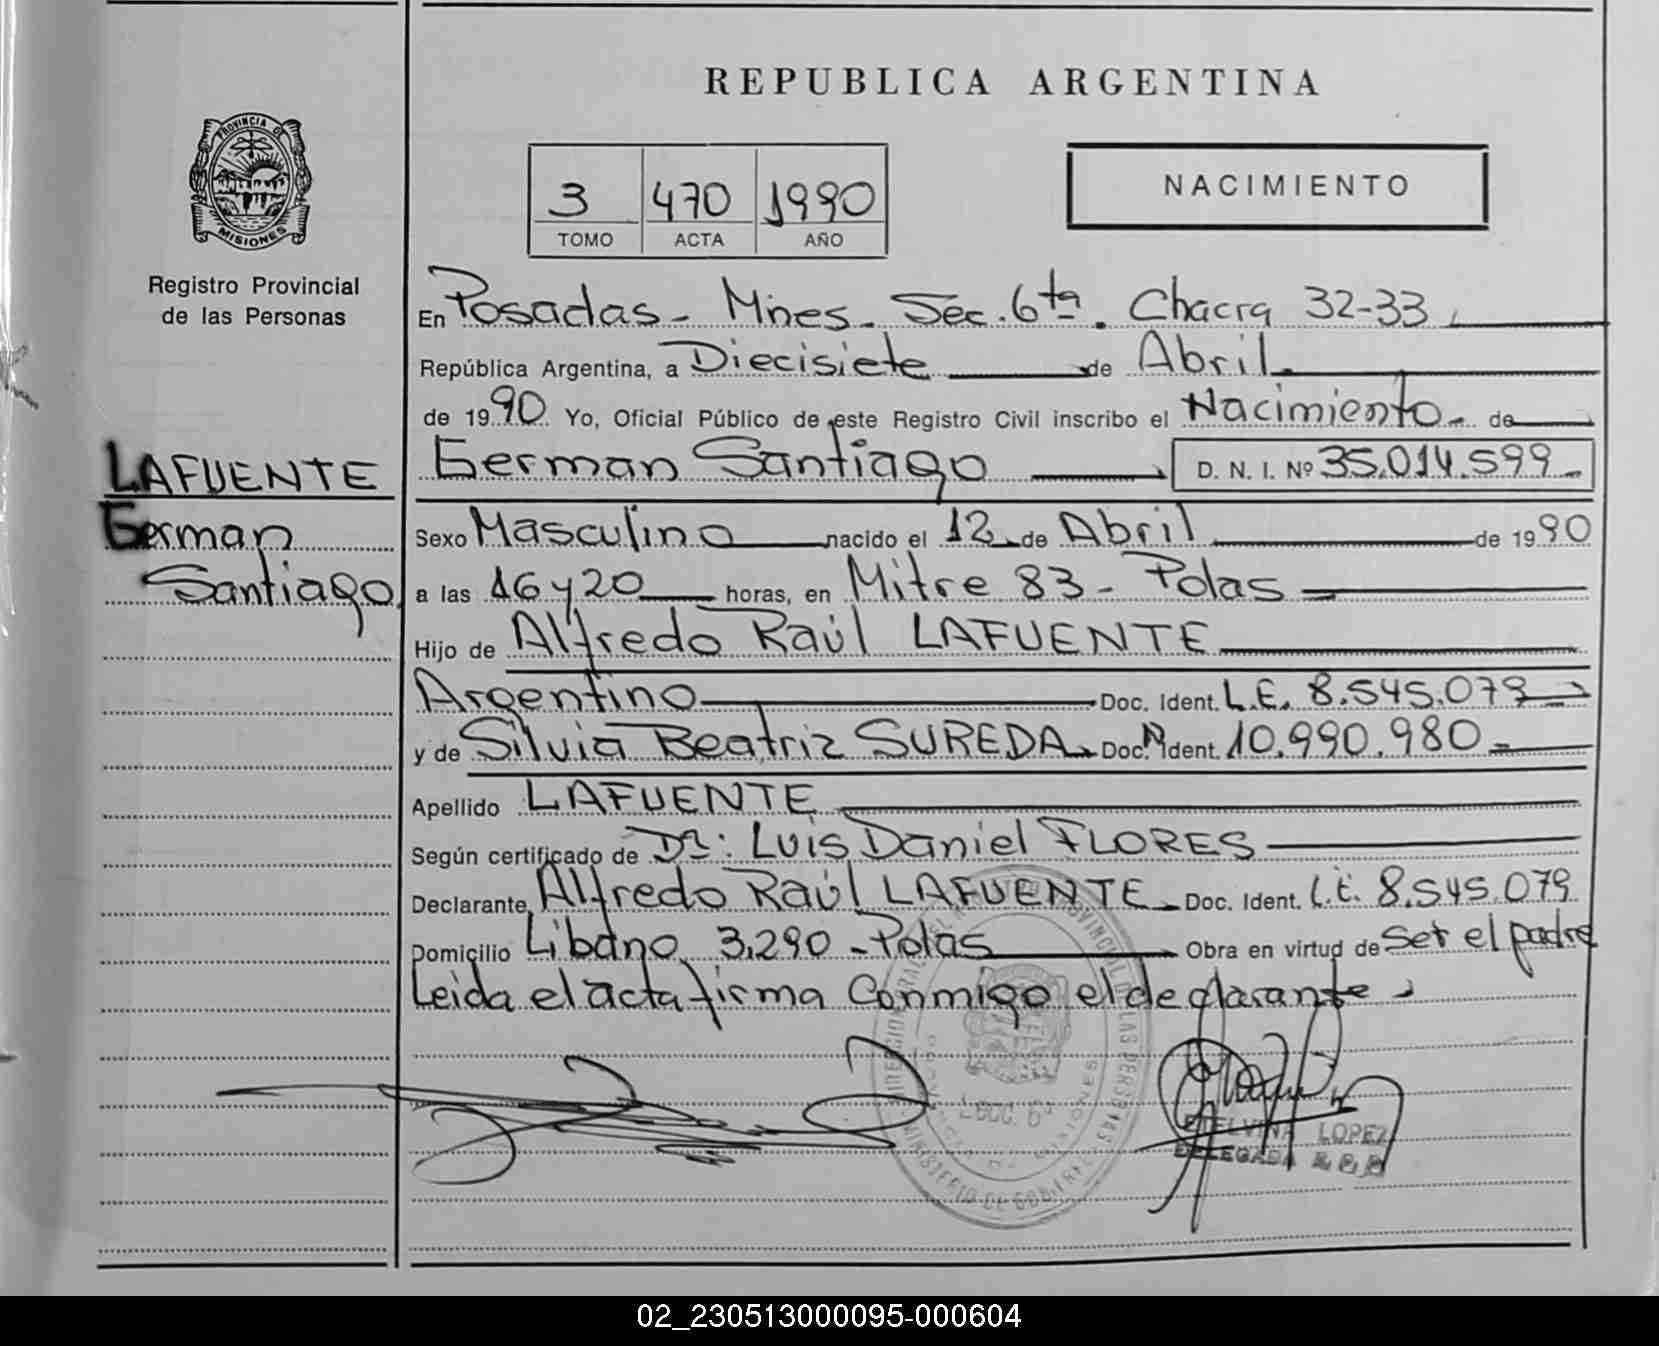 REPUBLICA ARGENTINA
PROVINCIA DE
MISIONES
Registro Provincial
de las Personas
3 470 1990
TOMO ACTA AÑO
NACIMIENTO
En Posadas - Mnes. Sec. 6ta. Chacra 32-33
República Argentina, a Diecisiete de Abril
de 1990 Yo, Oficial Público de este Registro Civil inscribo el Nacimiento de
LAFUENTE
German
Santiago
German Santiago D. N. I. Nº 35.014.599
Sexo Masculino nacido el 12 de Abril de 1990
a las 16 y 20 horas, en Mitre 83 - Pdas
Hijo de Alfredo Raúl LAFUENTE
Argentino Doc. Ident. L.E. 8.545.079
y de Silvia Beatriz SUREDA Doc. Ident. 10.990.980
Apellido LAFUENTE
Según certificado de Dr: Luis Daniel FLORES
Declarante Alfredo Raúl LAFUENTE Doc. Ident. L.E. 8.545.079
Domicilio Libano 3.290 - Pdas Obra en virtud de Ser el padre
Leida el acta firma Conmigo el declarante
ETELVINA LOPEZ
DELEGADA R.P.P
02_230513000095-000604